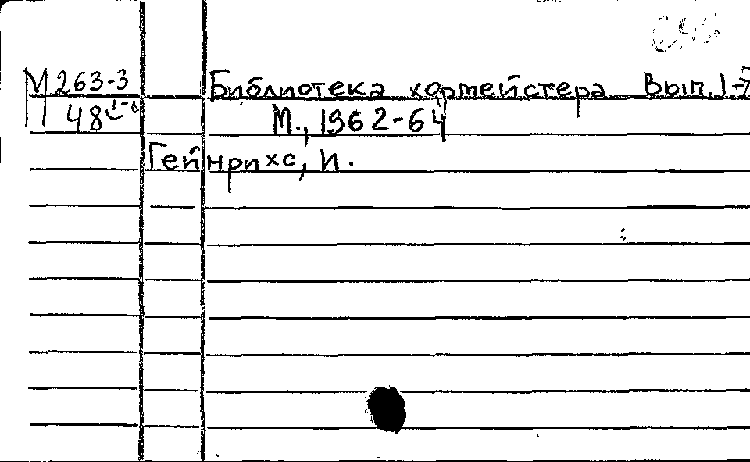 М 263-3 Библиотека хормейстера Вып. 1-7
48 М., 1962-64
Гейнрихс, И.